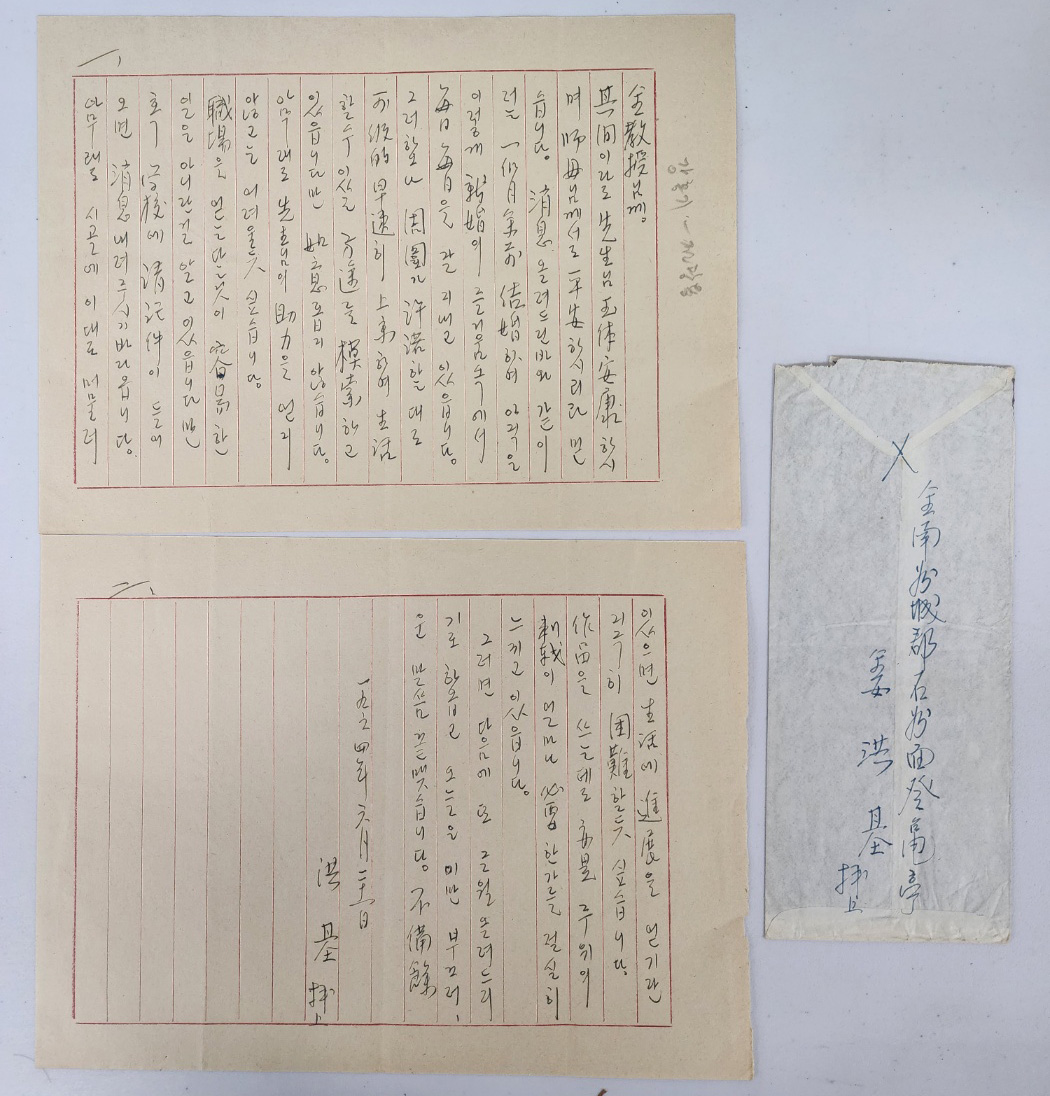 金教授님께.
其間이라도 先生님 玉体安康하시
며 師母님께서도 平安하시리라 믿
습니다. 消息 올려드린바와 같이
저는 一個月余前 結婚하여 아직은
이렇게 新婚의 즐거움속에서
每日每日을 잘 지내고 있읍니다.
그러하오나 周圍가 許諾하는대로
可及的 早速히 上京하여 生活
할수있는 方途를 模索하고
있읍니다만 如意롭지 않습니다.
아무래도 先生님의 助力을 얻지
않고는 어려울듯 싶습니다
職場을 얻는다는것이 容易한
일은 아니란걸 알고 있읍니다만
혹 學校에 請托件이 들어
오면 消息 내려주시기 바라옵니다.
아무래도 시골에 이대로 머물러
一、
있으면 生活에 進展을 얻기란
지극히 困難할듯 싶습니다
作品을 쓰는데도 亦是 주위의
刺戟이 얼마나 必要한가를 절실히
느끼고 있읍니다.
그러면 다음에 또 글월 올려드리
기로 하옵고 오늘은 이만 부끄러
운 말씀 끝맺습니다. 不備餘
一九六四年 六月 二十一日
洪 基 拜上
二、
全南 谷城郡 石谷面 登龜亭
姜 洪 基 拜上